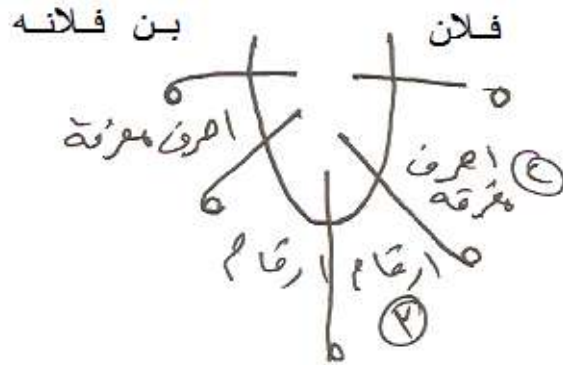 فلان
بن فلانه
احرف مفرقة
احرف
مفرقه
ارقام
ارقام
٣